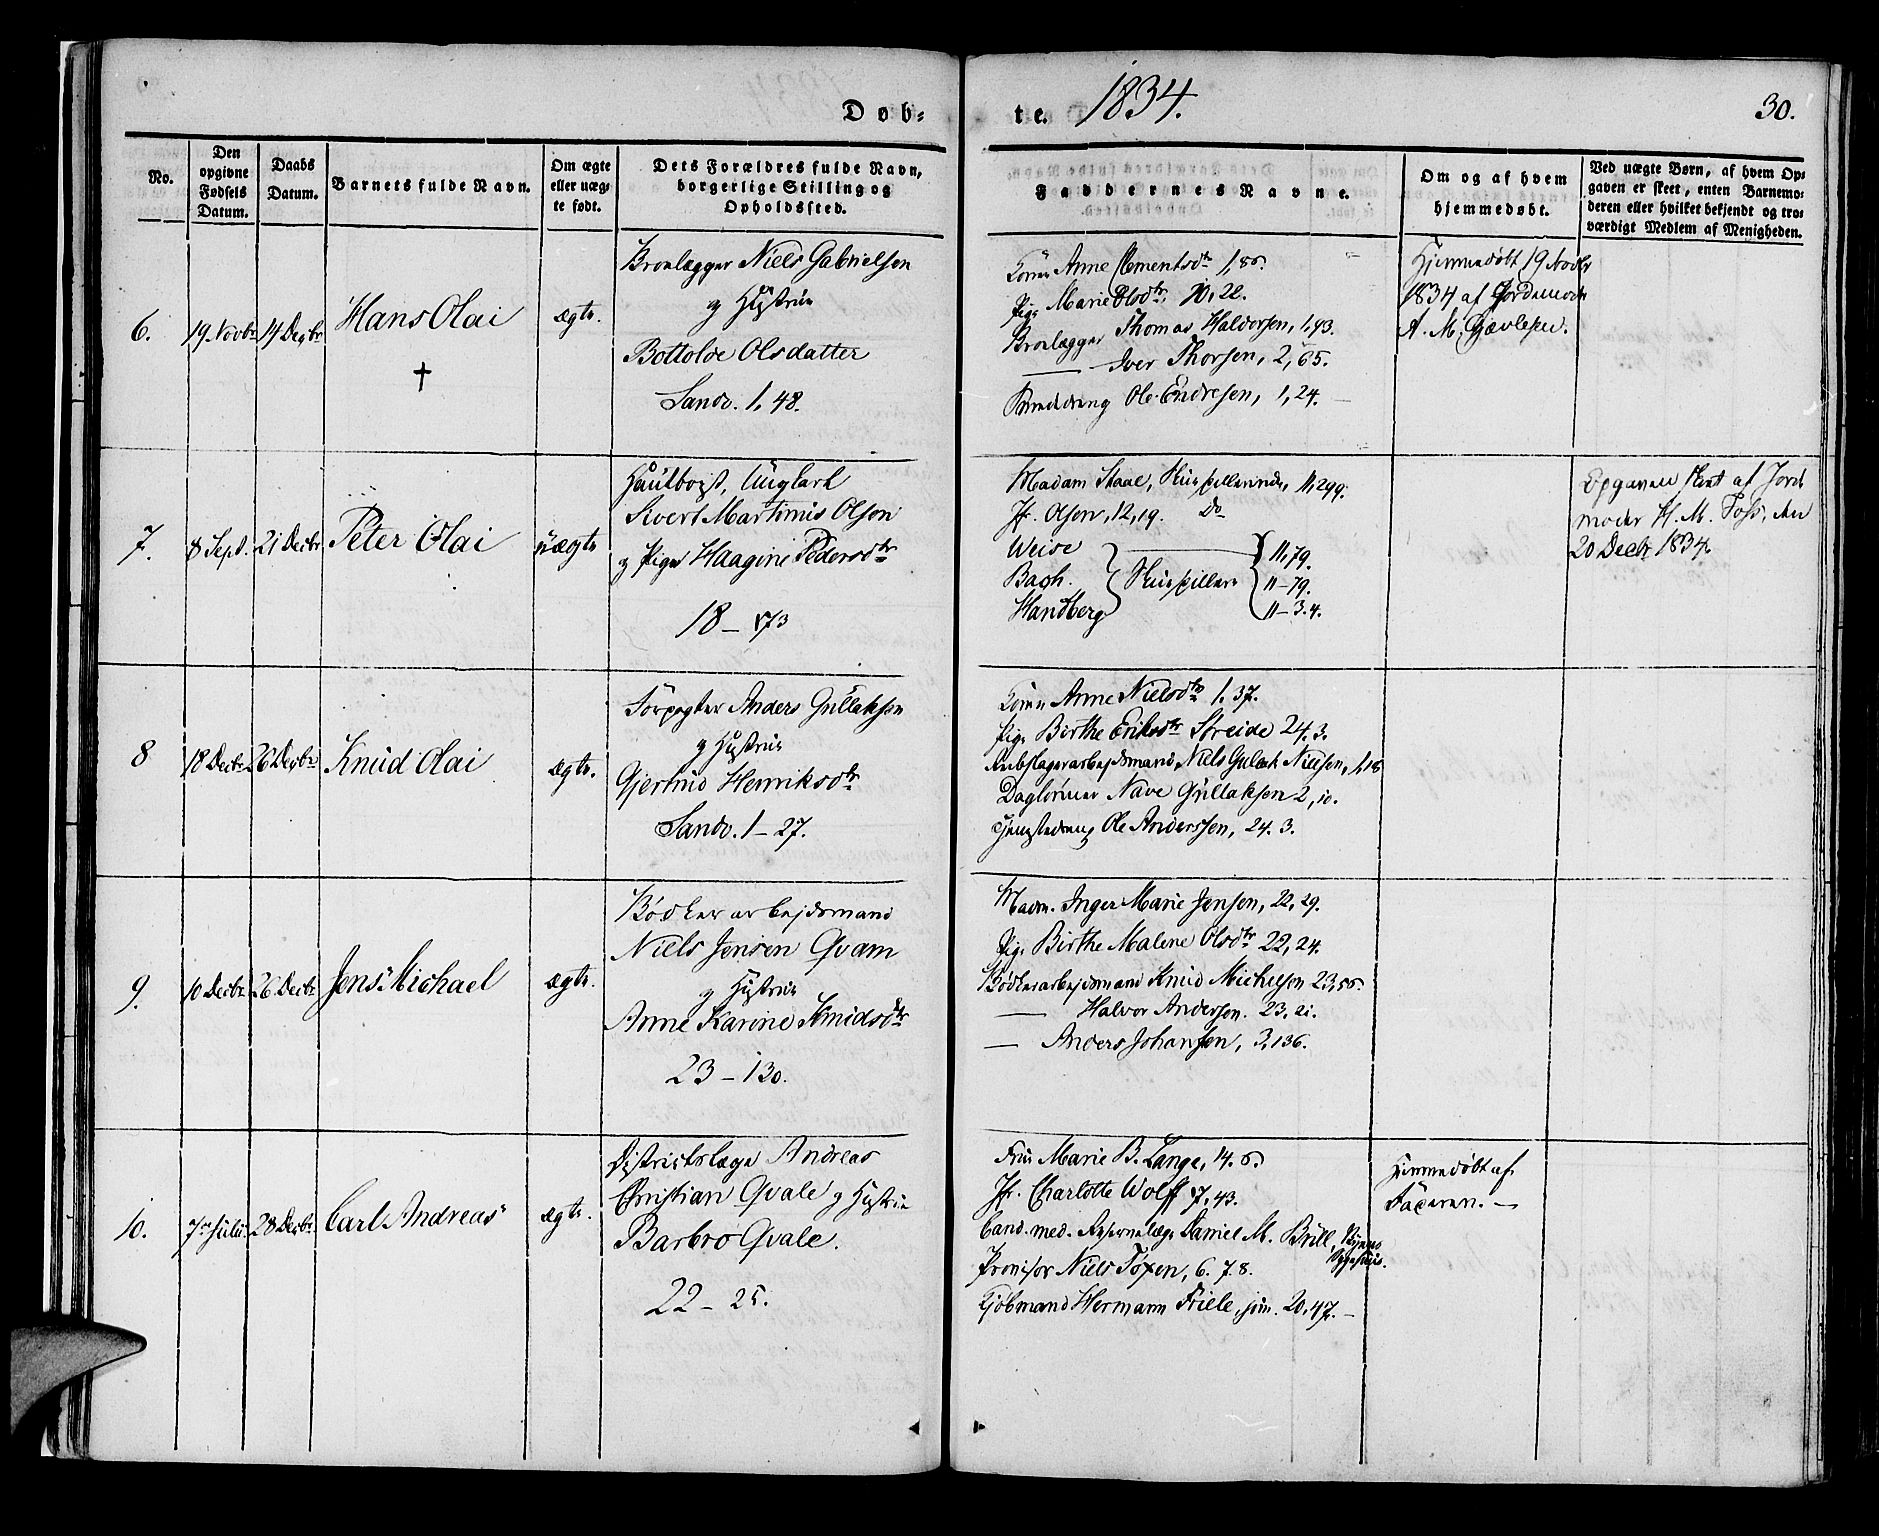 Døb-
te. 1834.
30.
No.
Den opgivne Fødsels Datum.
Daabs Datum.
Barnets fulde Navn.
Om ægte eller uæg-te født.
Dets Forældres fulde Navn, borgerlige Stilling og Opholdssted.
Faddernes Navne.
Om og af hvem hjemmedøbt.
Ved uægte Børn, af hvem Op-gaven er skeet, enten Barnemo-deren eller hvilket bekjendt og tro-værdigt Medlem af Menigheden.
6.
19 Novbr
14 Decbr
Hans Olai
†
ægte.
Broelægger Niels Gabrielsen
og Hustrue
Bottolde Olsdatter
Sandv. 1, 48.
Konen Anne Clementsdtr 1, 86.
Pige Marie Olsdtr, 10, 22.
Broelægger Thomas Haldorsen, 1, 93.
— Iver Thorsen, 2, 65.
Ole Endresen, 1, 24. —
Hjemmedøbt 19 Novbr
1834 af Jordemoder
A. M. Gjævlesen.
7.
8 Sept.
21 Decbr
Peter Olai
uægte
Hautboist, Ungkarl
Sivert Martinus Olsen
og Pige Haagine Pedersdtr
18 – 173
Madam Staal, Skuespillerinde, 11, 299.
Jfr. Olsen, 12, 19. Do
Weise
Bagh.
Handberg
Skuespillere
11, 79.
11 – 79.
11 – 3.4.
Opgaven skeet af Jorde
moder H. M. Foss, den
20 Decbr 1834.
8
18 Decbr
26 Decbr
Knud Olai
ægte.
Forpagter Anders Gullaksen
og Hustrue
Gjertrud Henriksdtr
Sandv. 1 – 27.
Konen Anne Nielsdtr 1, 37.
Pige Birthe Eriksdtr Streide 24. 3.
Reebslagerarbejdsmand Niels Gulak Nielsen, 1, 18
Daglønner Nave Gullaksen 2, 10.
Tjenestedreng Ole Anderssen, 24. 3.
9.
10 Decbr
26 Decbr
Jens Michael
ægte.
Bødkerarbejdsmand
Niels Jensen Qvam
og Hustrue
Anne Karine Knudsdtr
23 – 130.
Madm. Inger Marie Jensen, 22, 29.
Pige Birthe Malene Olsdtr 22, 24.
Bødkerarbejdsmand Knud Michelsen 23, 56.
— Halvor Andersen. 23, 21.
— Anders Johansen, 3, 136.
10.
7de Julii
28 Decbr
Carl Andreas
ægte.
Districtslæge Andreas
Christian Qvale og Hustrue
Barbro Qvale.
22 – 25.
Frue Marie B. Lange, 14. 6.
Jfr. Charlotte Wolff 7, 43.
Cand. med. Reservelæge Daniel M. Brill, Byens
Sygehuus.
Provisor Niels Töxen, 6. 7. 8.
Kjøbmand Hermann Friele, jun. 20, 47. —
Hjemmedøbt af
Faderen. —